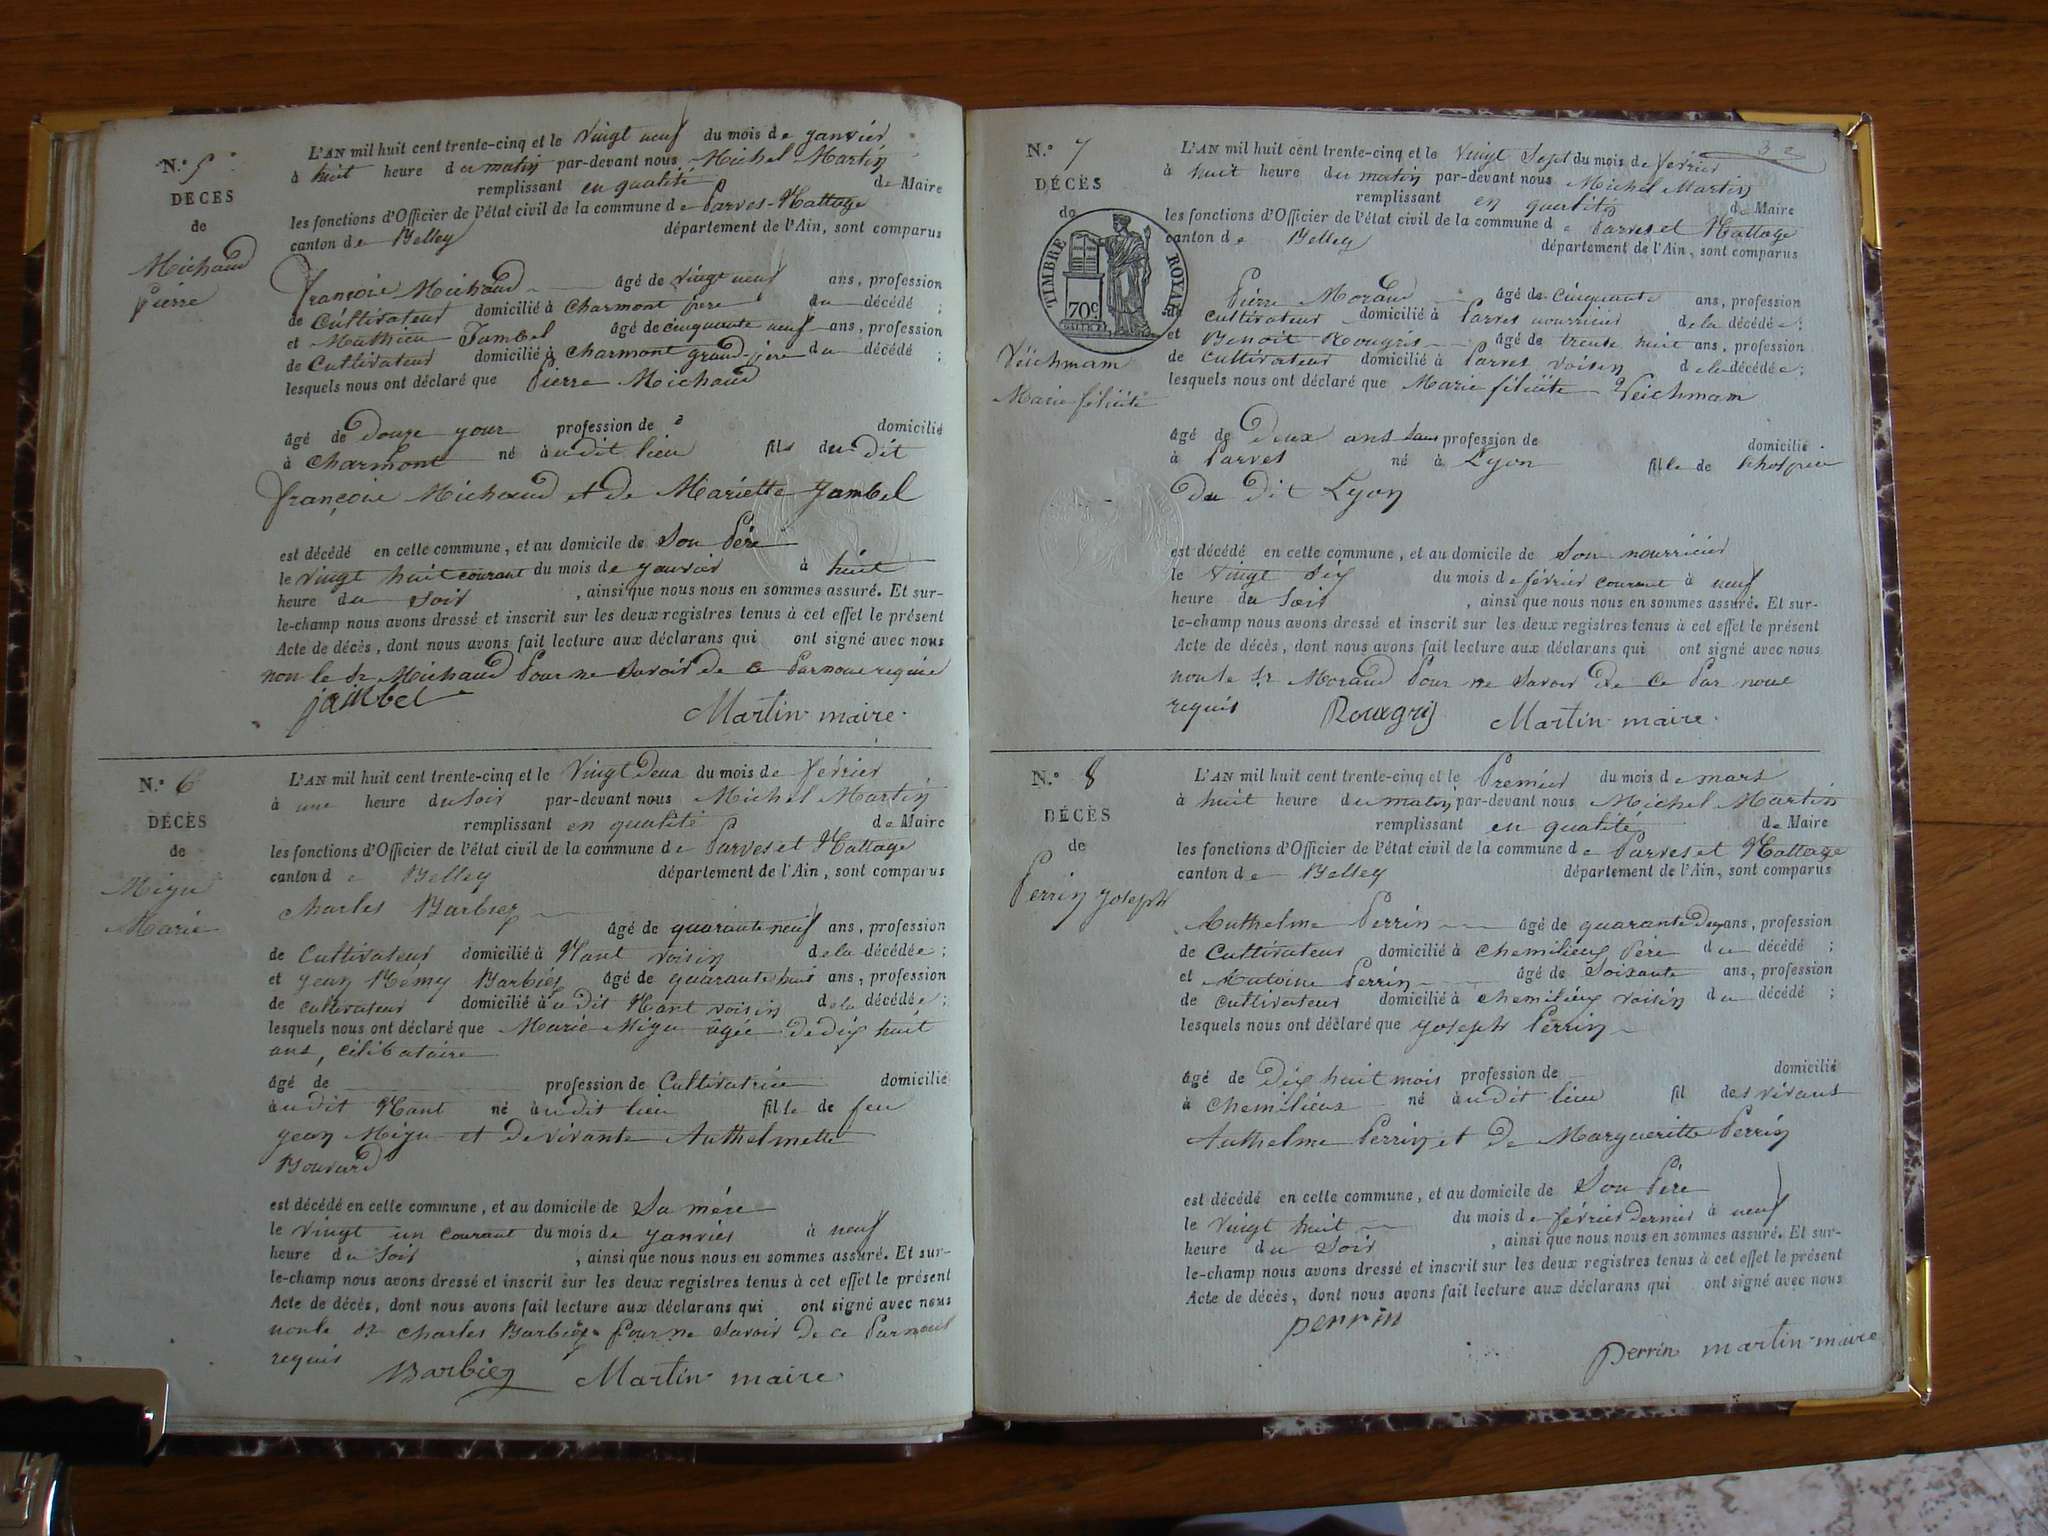 N.° 5
DÉCÈS
de
Michaud
pierre
L'AN mil huit cent trente-cinq et le vingt neuf du mois de janvier
à huit heure du matin par-devant nous Michel Martin
remplissant en qualité de Maire
les fonctions d'Officier de l'état civil de la commune de Parves-Nattage
canton de Belley département de l'Ain, sont comparus
françoise Michaud âgé de vingt neuf ans, profession
de Cultivateur domicilié à Charmont pere du décédé ;
et Mathieu Jambel âgé de cinquante neuf ans, profession
de Cultivateur domicilié à Charmont grand-pere du décédé ;
lesquels nous ont déclaré que Pierre Michaud
âgé de Douze jour profession de domicilié
à Charmont né àudit lieu fils du Dit
françoise Michaud et de Mariette Jambel
est décédé en cette commune, et au domicile de Son Père
le vingt huit courant du mois de janvier à huit
heure du Soir , ainsi que nous nous en sommes assuré. Et sur-
le-champ nous avons dressé et inscrit sur les deux registres tenus à cet effet le présent
Acte de décès, dont nous avons fait lecture aux déclarans qui ont signé avec nous
non le Sr Michaud Pour ne Savoir de ce Par nous requis
jambel Martin maire.
N.° 6
DÉCÈS
de
Migu
Marie
L'AN mil huit cent trente-cinq et le Vingt Deux du mois de février
à une heure du Soir par-devant nous Michel Martin
remplissant en qualité de Maire
les fonctions d'Officier de l'état civil de la commune de Parves et Nattage
canton de Belley département de l'Ain, sont comparus
Charles Barbier
âgé de quarante neuf ans, profession
de Cultivateur domicilié à Nant voisin de la décédée ;
et Jean Rémy Barbier âgé de quarante huit ans, profession
de cultivateur domicilié àu dit Nant voisin de la décédée ;
lesquels nous ont déclaré que Marie Migu âgée De dix huit
ans, célibataire
âgé de profession de Cultivatrice domicilié
àu dit Nant né àu dit lieu fille de feu
Jean Migu et De vivante Anthelmette
Bouvard
est décédé en cette commune, et au domicile de Sa mére
le vingt un courant du mois de janvier à neuf
heure du Soir , ainsi que nous nous en sommes assuré. Et sur-
le-champ nous avons dressé et inscrit sur les deux registres tenus à cet effet le présent
Acte de décès, dont nous avons fait lecture aux déclarans qui ont signé avec nous
non le Sr Charles Barbier Pour ne Savoir De ce Par nous
requis
Barbier Martin maire.
N.° 7
DÉCÈS
de
TIMBRE ROYAL
70c
Veichmam
Marie félicité
L'AN mil huit cent trente-cinq et le Vingt Sept du mois de février
à huit heure du matin par-devant nous Michel Martin
remplissant en qualité de Maire
les fonctions d'Officier de l'état civil de la commune de Parves et Nattage
canton de Belley département de l'Ain, sont comparus
Pierre Moraud âgé de cinquante ans, profession
cultivateur domicilié à Parves nourricier de la décédée ;
et Benoit Rougris âgé de trente huit ans, profession
de Cultivateur domicilié à Parves voisin de la décédée ;
lesquels nous ont déclaré que Marie félicite Veichmam
âgé de Deux ans Sans profession de domicilié
à Parves né à Lyon fille de Lhospice
Du Dit Lyon
est décédé en cette commune, et au domicile de Son nourricier
le Vingt Six du mois de février courant à neuf
heure du Soir , ainsi que nous nous en sommes assuré. Et sur-
le-champ nous avons dressé et inscrit sur les deux registres tenus à cet effet le présent
Acte de décès, dont nous avons fait lecture aux déclarans qui ont signé avec nous
non le Sr Moraud Pour ne Savoir De Ce Par nous
requis Rougris Martin maire.
N.° 8
DÉCÈS
de
Perrin Joseph
L'AN mil huit cent trente-cinq et le Premier du mois de mars
à huit heure du matin par-devant nous Michel Martin
remplissant en qualité de Maire
les fonctions d'Officier de l'état civil de la commune de Parves et Nattage
canton de Belley département de l'Ain, sont comparus
Anthelme Perrin âgé de quarante Deux ans, profession
de Cultivateur domicilié à Chemilieux Père du décédé ;
et Antoine Perrin âgé de Soixante ans, profession
de cultivateur domicilié à chemilieux voisin du décédé ;
lesquels nous ont déclaré que Joseph Perrin
âgé de Dix huit mois profession de domicilié
à Chemilieux né àu dit lieu fil des vivans
Anthelme Perrin et De Margueritte Perrin
est décédé en cette commune, et au domicile de Son Père
le Vingt huit du mois de février dernier à neuf
heure du Soir , ainsi que nous nous en sommes assuré. Et sur-
le-champ nous avons dressé et inscrit sur les deux registres tenus à cet effet le présent
Acte de décès, dont nous avons fait lecture aux déclarans qui ont signé avec nous
perrin
perrin martin maire